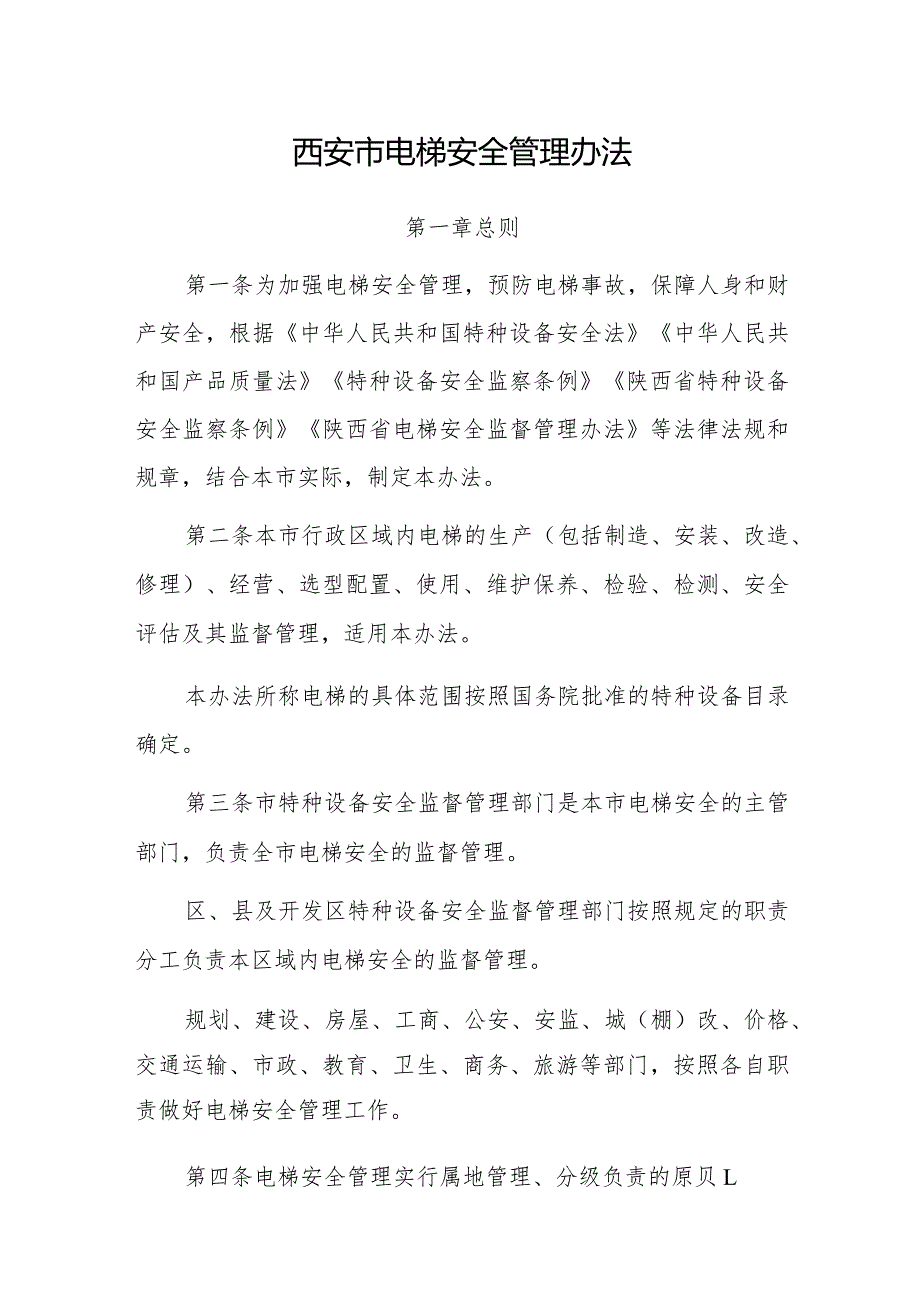 西安市电梯安全管理办法
第一章总则
第一条为加强电梯安全管理，预防电梯事故，保障人身和财
产安全，根据《中华人民共和国特种设备安全法》《中华人民共
和国产品质量法》《特种设备安全监察条例》《陕西省特种设备
安全监察条例》《陕西省电梯安全监督管理办法》等法律法规和
规章，结合本市实际，制定本办法。
第二条本市行政区域内电梯的生产（包括制造、安装、改造、
修理）、经营、选型配置、使用、维护保养、检验、检测、安全
评估及其监督管理，适用本办法。
本办法所称电梯的具体范围按照国务院批准的特种设备目录
确定。
第三条市特种设备安全监督管理部门是本市电梯安全的主管
部门，负责全市电梯安全的监督管理。
区、县及开发区特种设备安全监督管理部门按照规定的职责
分工负责本区域内电梯安全的监督管理。
规划、建设、房屋、工商、公安、安监、城（棚）改、价格、
交通运输、市政、教育、卫生、商务、旅游等部门，按照各自职
责做好电梯安全管理工作。
第四条电梯安全管理实行属地管理、分级负责的原贝L